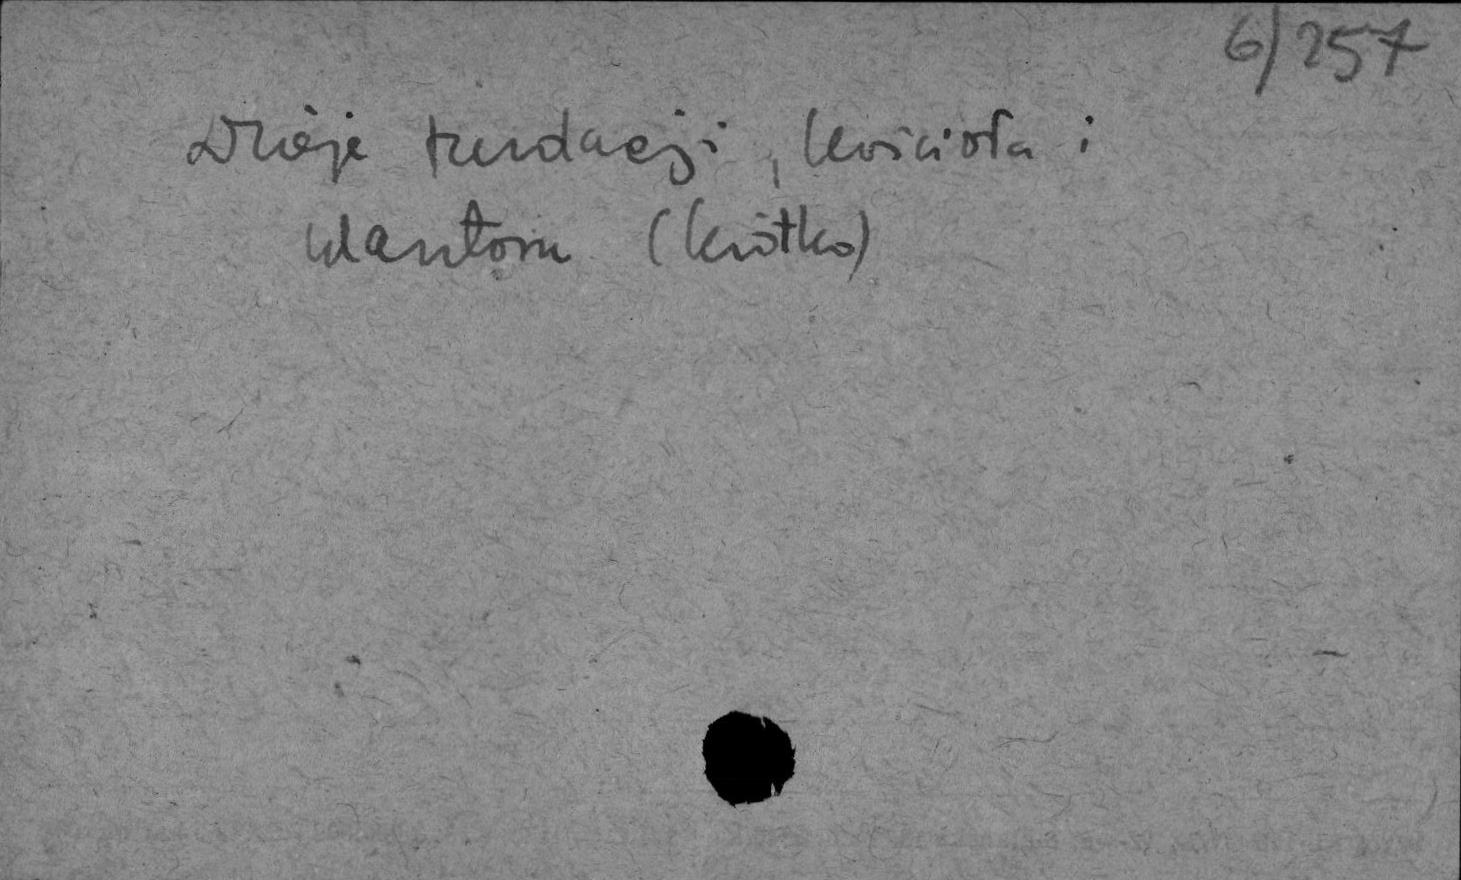 6/257
Dzieje fundacji, kościoła i
klasztoru (krótko)